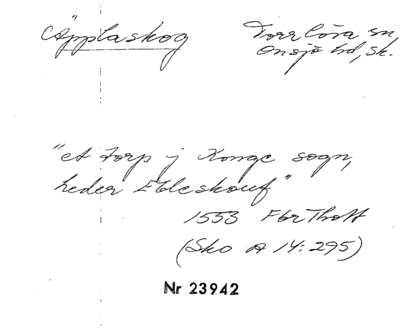 (Äpplaskog Torrlösa sn,
Onsjö hd, Sk.
"et torp j Konge sogn,
heder Ebleskouf"
1553 Fbr Thott
(Sko A 14:295)
Nr 23942